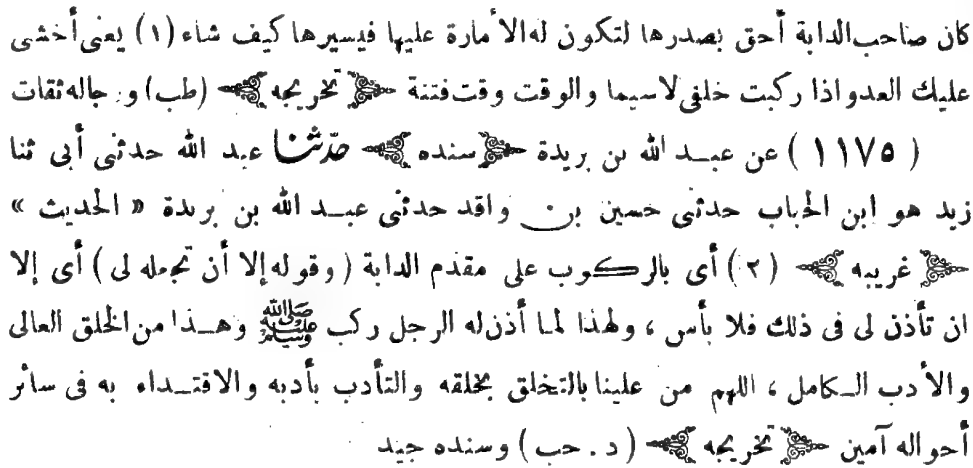 كان صاحب الدابة أحق بصدرها لتكون له الأمارة عليها فيسيرها كيف شاء (١) يعنى أخشى
عليك العدو اذا ركبت خلفى لاسيما والوقت وقت فتنة ﴿ تخريجه ﴾ (طب) ورجاله ثقات
( ١١٧٥ ) عن عبد الله بن بريدة ﴿ سنده ﴾ حدثنا عبد الله حدثنى أبى ثنا
زيد هو ابن الحباب حدثنى حسين بن واقد حدثنى عبد الله بن بريدة « الحديث »
﴿ غريبه ﴾ (٢) أى بالركوب على مقدم الدابة ( وقوله إلا أن تجعله لى ) أى إلا
ان تأذن لى فى ذلك فلا بأس ، ولهذا لما أذن له الرجل ركب ﷺ وهذا من الخلق العالى
والأدب الكامل ، اللهم من علينا بالتخلق بخلقه والتأدب بأدبه والاقتداء به فى سائر
أحواله آمين ﴿ تخريجه ﴾ ( د . حب ) وسنده جيد